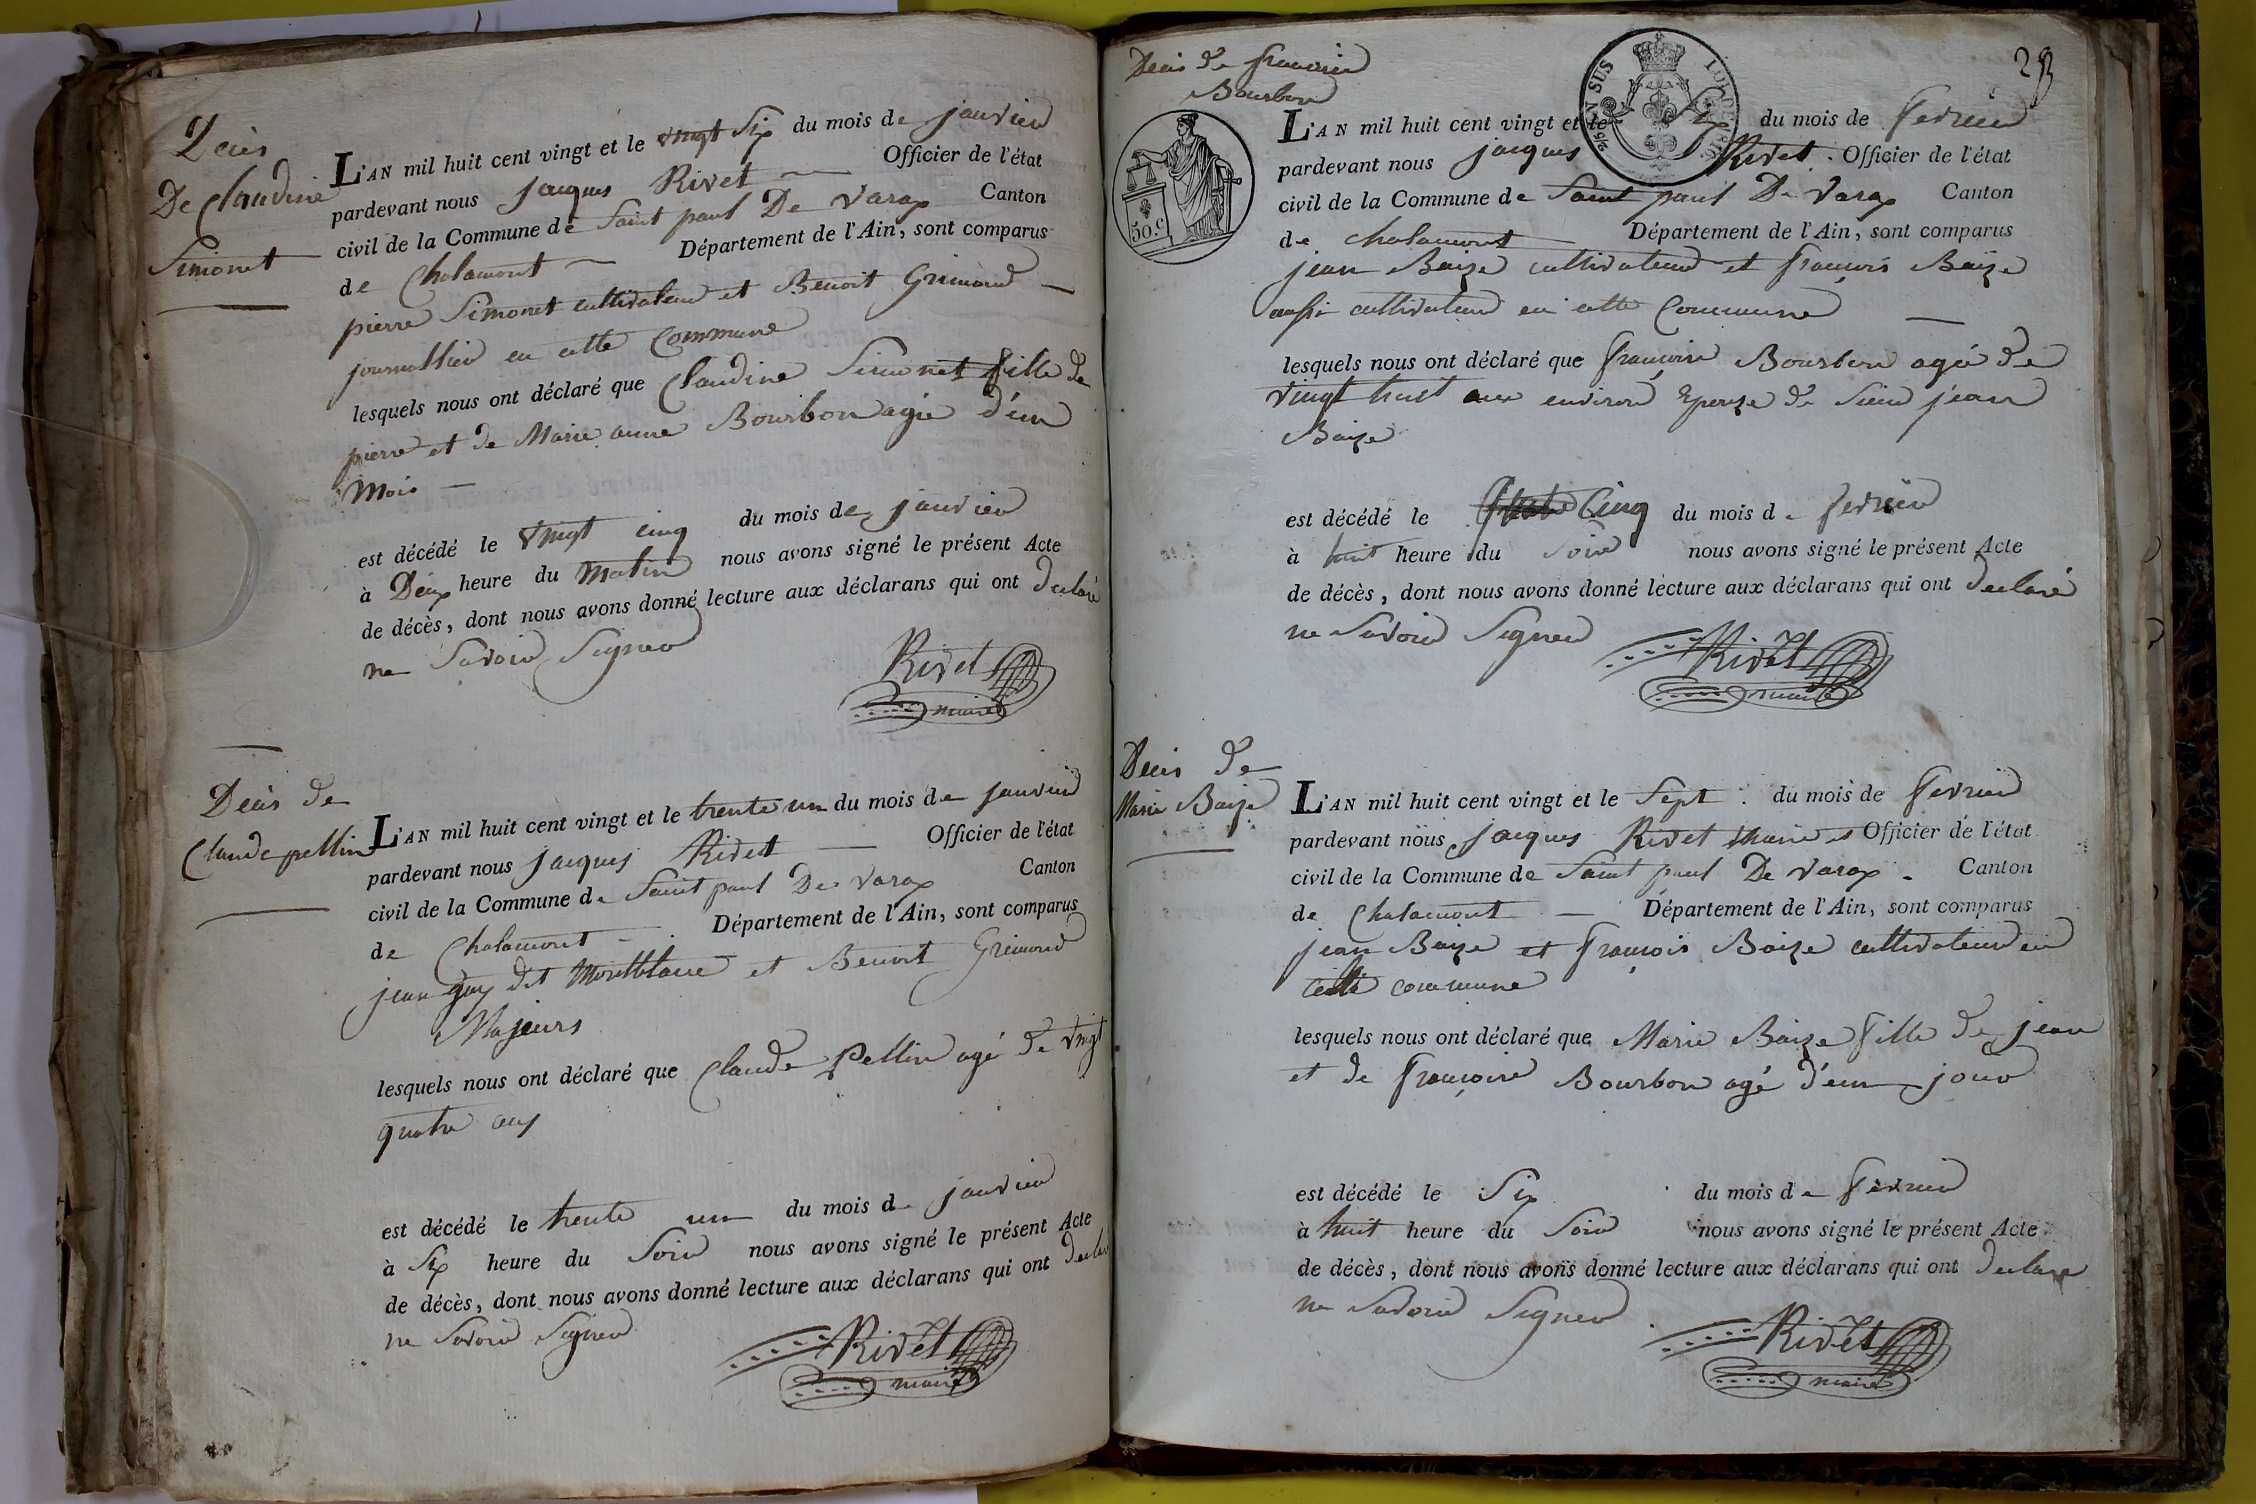 Décès
De Claudine
Simonet
L'AN mil huit cent vingt et le vingt Six du mois de janvier
pardevant nous jacques Rivet Officier de l'état
civil de la Commune de Saint paul De varax Canton
de Chalamont Département de l'Ain, sont comparus
pierre Simonet cultivateur et Benoit Grimond
journallier en cette Commune
lesquels nous ont déclaré que Claudine Simonet fille de
pierre et de Marie anne Bourbon agée d'un
Mois
est décédé le vingt cinq du mois de janvier
à Deux heure du Matin nous avons signé le présent Acte
de décès, dont nous avons donné lecture aux déclarans qui ont declaré
ne Savoir Signer
Rivet
maire
Décès de
Claude pellin
L'AN mil huit cent vingt et le trente un du mois de janvier
pardevant nous jacques Rivet Officier de l'état
civil de la Commune de Saint paul De varax Canton
de Chalamont Département de l'Ain, sont comparus
jean guy dit Montblanc et Benoit Grimond
Majeurs
lesquels nous ont déclaré que Claude Pellin agé de vingt
quatre ans
est décédé le trente un du mois de janvier
à Six heure du Soir nous avons signé le présent Acte
de décès, dont nous avons donné lecture aux déclarans qui ont declaré
ne Savoir Signer
Rivet
maire
28
Décès de françoise
Bourbon
50.c
L'AN mil huit cent vingt et le Six du mois de fevrier
pardevant nous jacques Rivet Officier de l'état
civil de la Commune de Saint paul De Varax Canton
de chalamont Département de l'Ain, sont comparus
jean Baize cultivateur et françois Baize
aussi cultivateur en cette Commune
lesquels nous ont déclaré que françoise Bourbon agée de
vingt huit ans environ Epouze de Sieur jean
Baize
est décédé le Cinq du mois de fevrier
à huit heure du Soir nous avons signé le présent Acte
de décès, dont nous avons donné lecture aux déclarans qui ont declaré
ne Savoir Signer
Rivet
maire
Décès de
Marie Baize
L'AN mil huit cent vingt et le Sept du mois de fevrier
pardevant nous jacques Rivet Maire et Officier de l'état
civil de la Commune de Saint paul De varax Canton
de Chalamont Département de l'Ain, sont comparus
jean Baize et françois Baize cultivateur en
cette commune
lesquels nous ont déclaré que Marie Baize fille de jean
et de françoise Bourbon agé d'un jour
est décédé le Six du mois de fevrier
à huit heure du Soir nous avons signé le présent Acte
de décès, dont nous avons donné lecture aux déclarans qui ont declaré
ne Savoir Signer
Rivet
maire